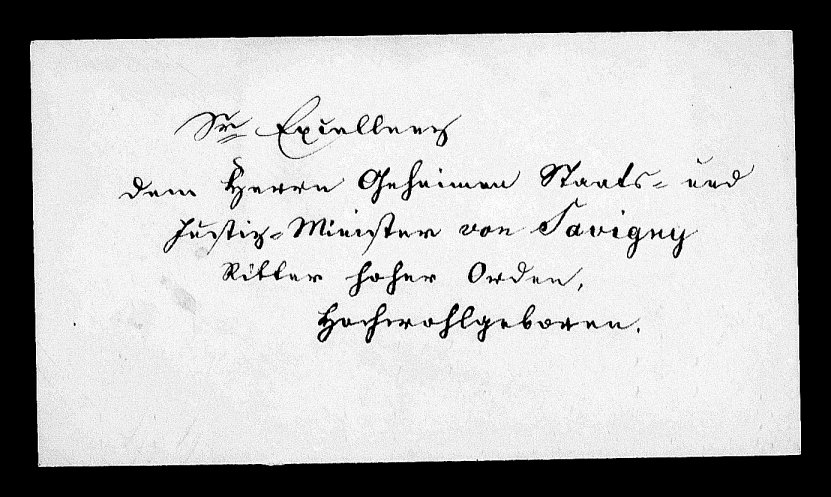 Sr Excellenz
dem Herrn Geheimen Staats- und
Justiz-Minister von Savigny
Ritter hoher Orden,
Hochwohlgeboren.